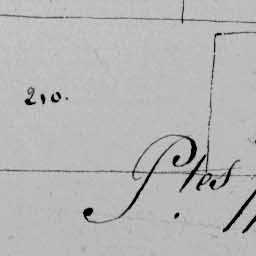 210.
P.tes